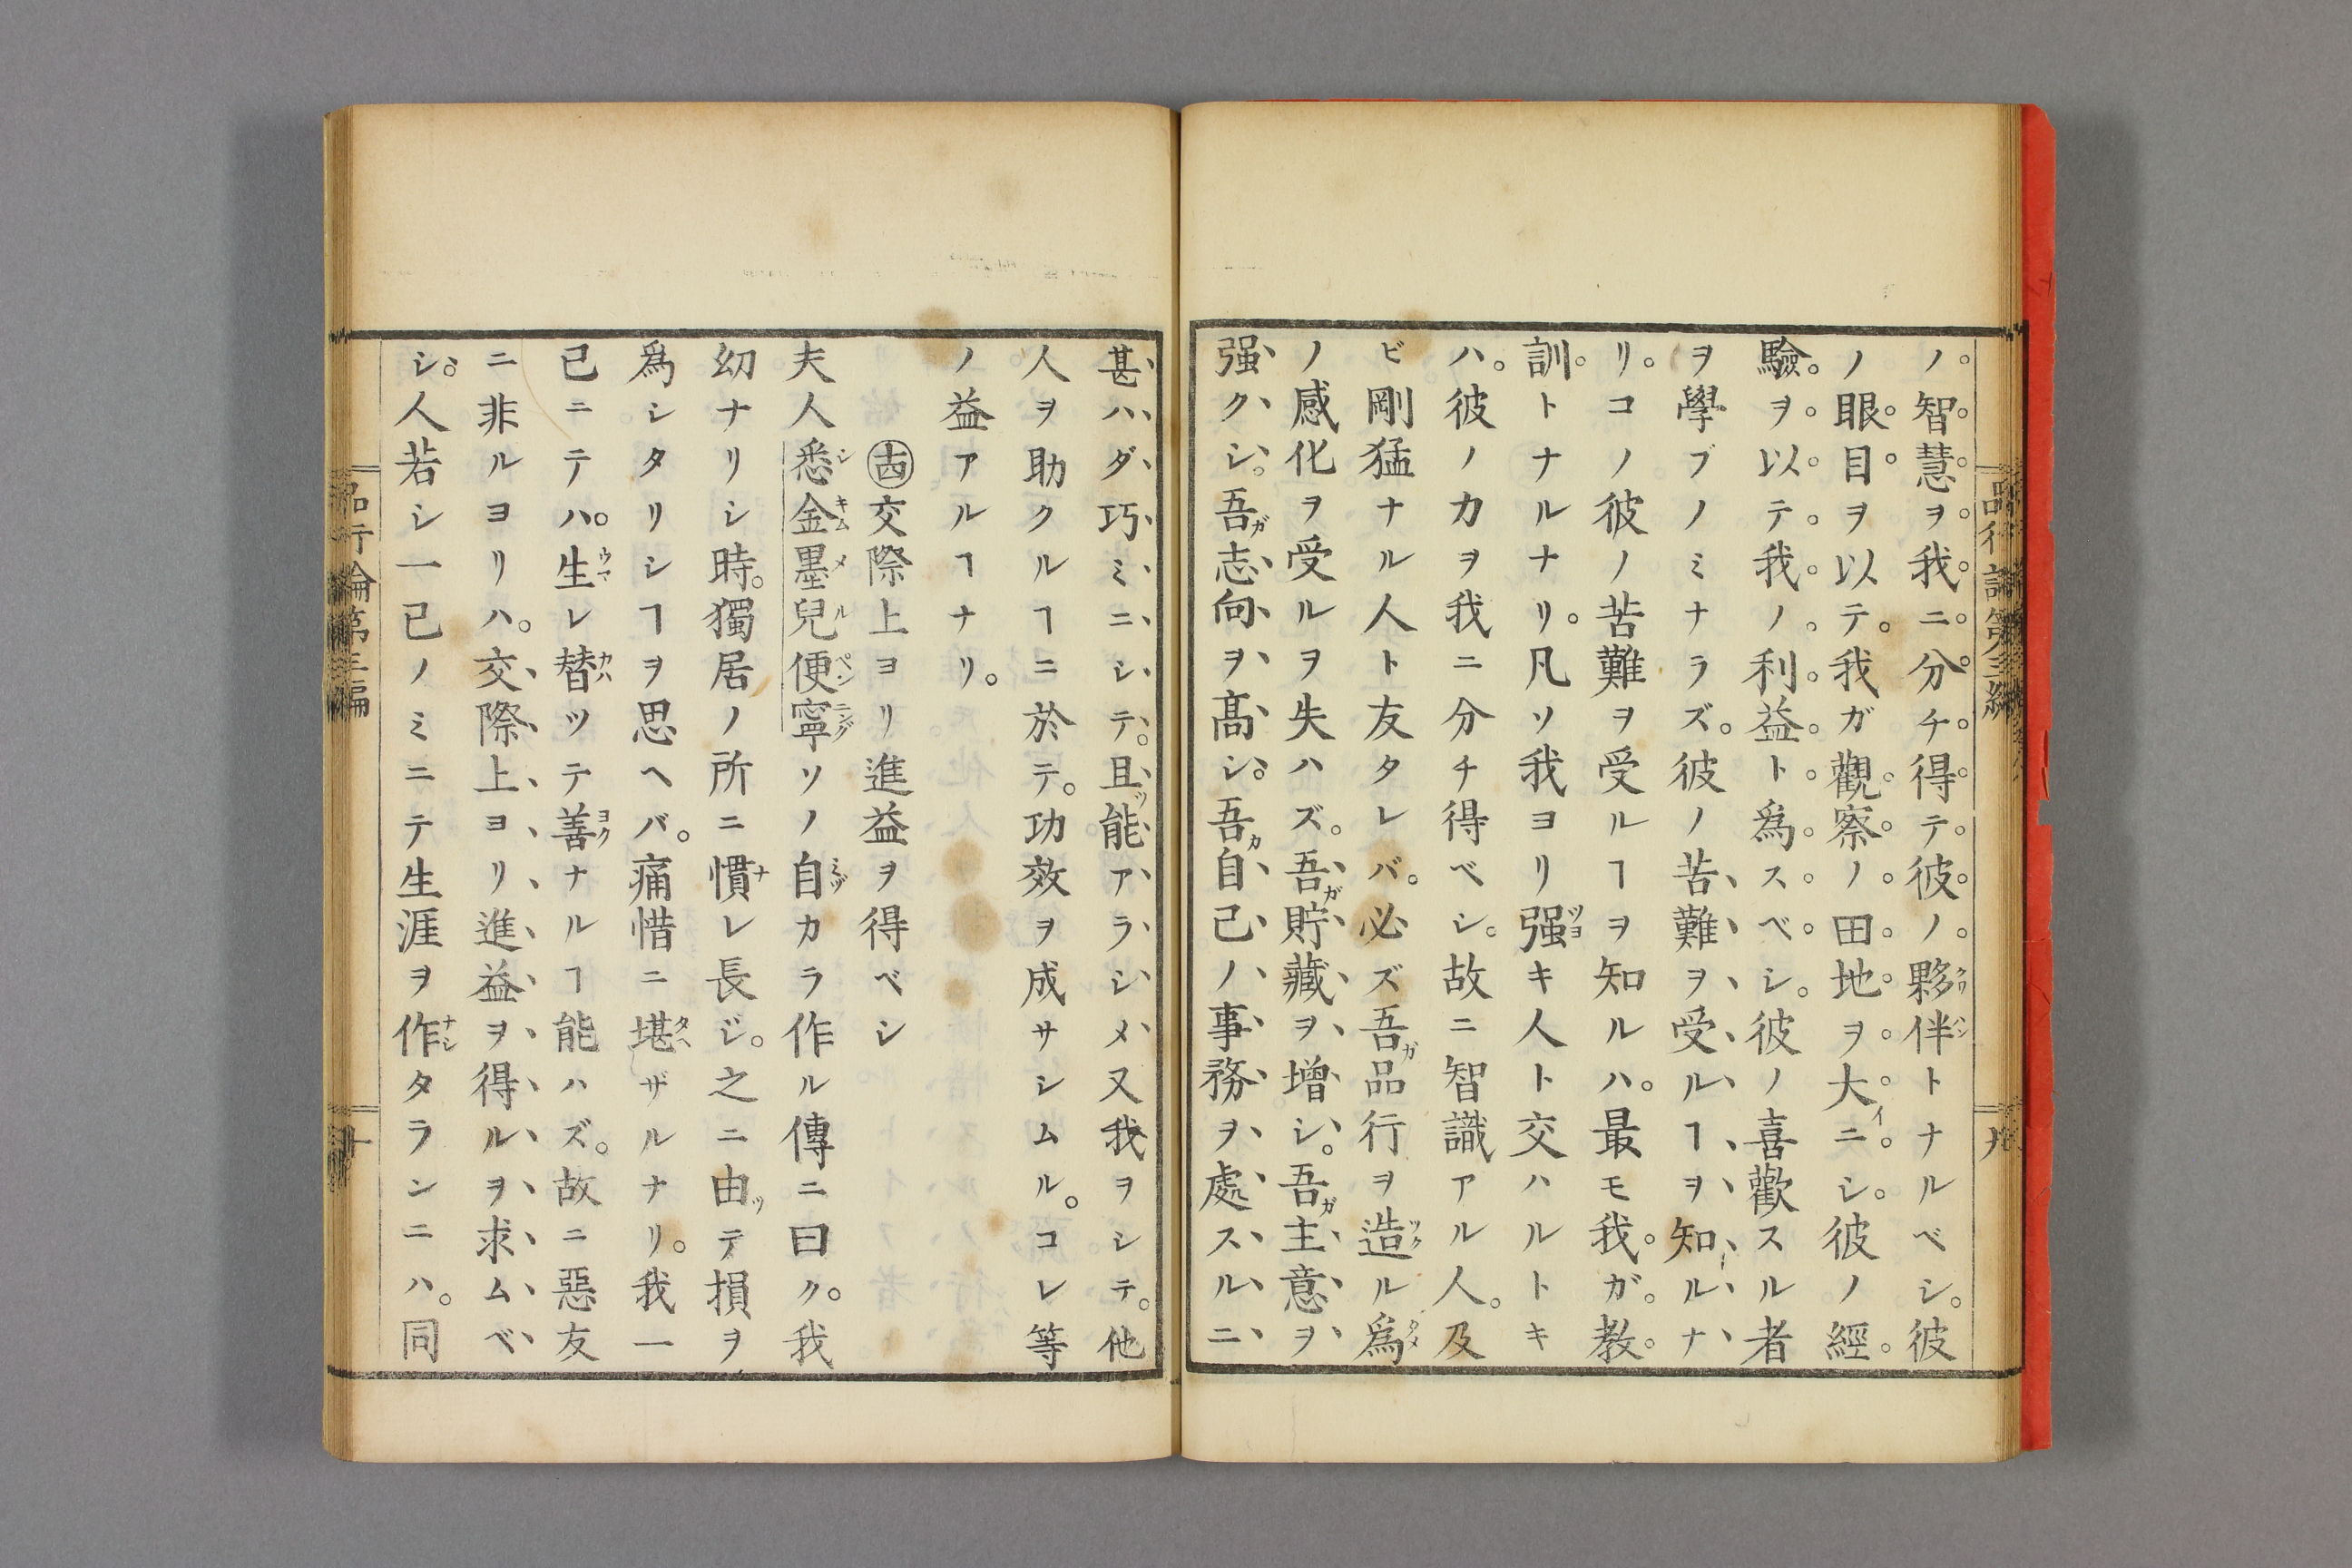 品行論第三編　九
ノ智慧ヲ我ニ分チ得テ彼ノ夥伴トナルベシ。彼
ノ眼目ヲ以テ。我ガ觀察ノ田地ヲ大ニシ。彼ノ經
驗ヲ以テ我ノ利益ト爲スベシ。彼ノ喜歡スル者
ヲ學ブノミナラズ。彼ノ苦難ヲ受ルヿヲ知ルナ
リ。コノ彼ノ苦難ヲ受ルヿヲ知ルハ。最モ我ガ教
訓トナルナリ。凡ソ我ヨリ强キ人ト交ハルトキ
ハ。彼ノカヲ我ニ分チ得ベシ。故ニ智識アル人。及
ビ剛猛ナル人ト友タレバ。必ズ吾品行ヲ造ル爲
ノ感化ヲ受ルヲ失ハズ。吾貯藏ヲ增シ。吾主意ヲ
强クシ。吾志向ヲ高シ。吾自己ノ事務ヲ處スルニ
甚ハダ巧ミニシテ。且能アラシメ又我ヲシテ。他
人ヲ助クルヿニ於テ。功效ヲ成サシムル。コレ等
ノ益アルヿナリ。
㊉四交際上ヨリ進益ヲ得ベシ
夫人悉金墨兒便寧ソノ自カラ作ル傳ニ曰ク。我
幼ナリシ時。獨居ノ所ニ慣レ長ジ。之ニ由テ損ヲ
爲シタリシヿヲ思ヘバ。痛惜ニ堪ザルナリ。我一
己ニテハ。生レ替ツテ善ナルヿ能ハズ。故ニ惡友
ニ非ルヨリハ。交際上ヨリ進益ヲ得ルヲ求ムベ
シ。人若シ一己ノミニテ生涯ヲ作タランニハ。同
品行論第三編　十